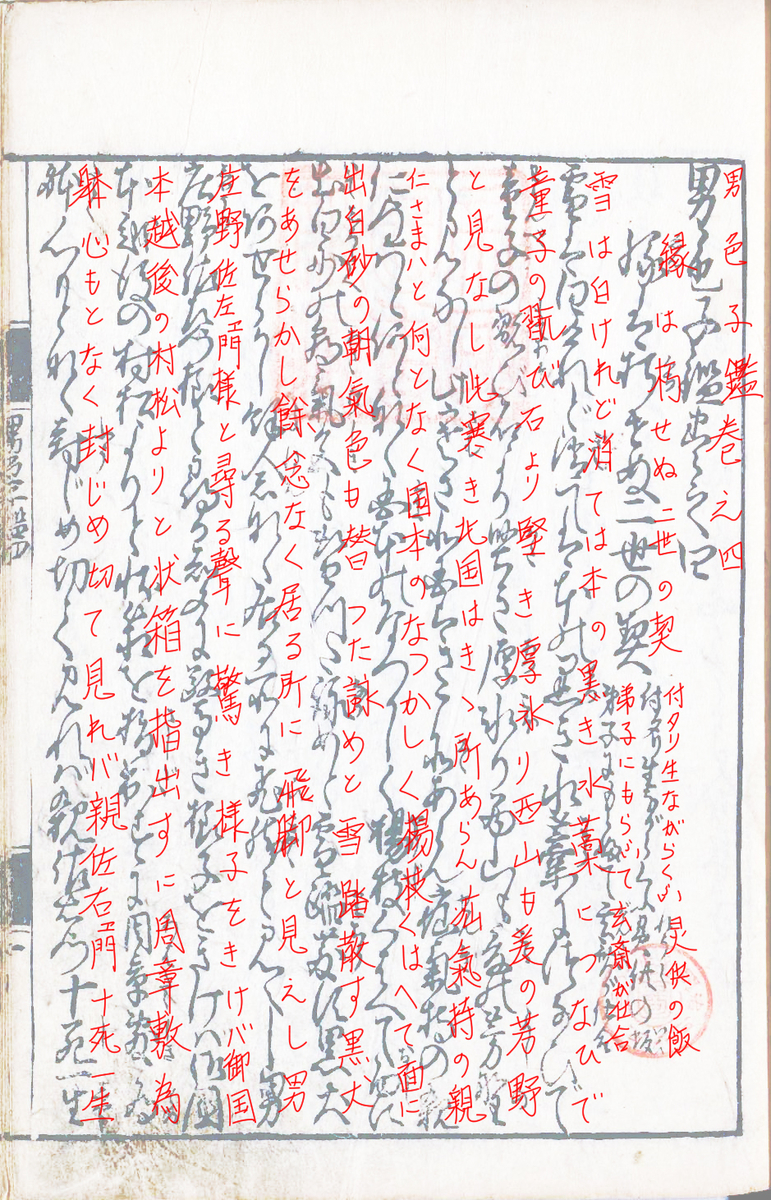 男色子鑑巻之四
縁は朽せぬ二世の契
付タリ生ながらくふ児供の飯
梯子にもらふて玄斎が仕合
雪は白けれど消ては本の黒き水藁につなひで
童子の翫び石より堅き厚氷り西山も爰の芳野
と見なし此寒き北国はきゝ所あらん荘氣持の親
仁さまハと何となく国本のなつかしく楊枝くはへて面に
出白砂の朝氣色も替つた詠めと雪踏散す黒犬
をあせらかし餘念なく居る所に飛脚と見えし男
庄野佐左衛門様と尋る聲に驚き様子をきけバ御国
本越後の村松よりと状箱を指出すに周章敷為
躰心もとなく封じめ切て見れバ親佐右衛門十死一生
男色子鑑四
一